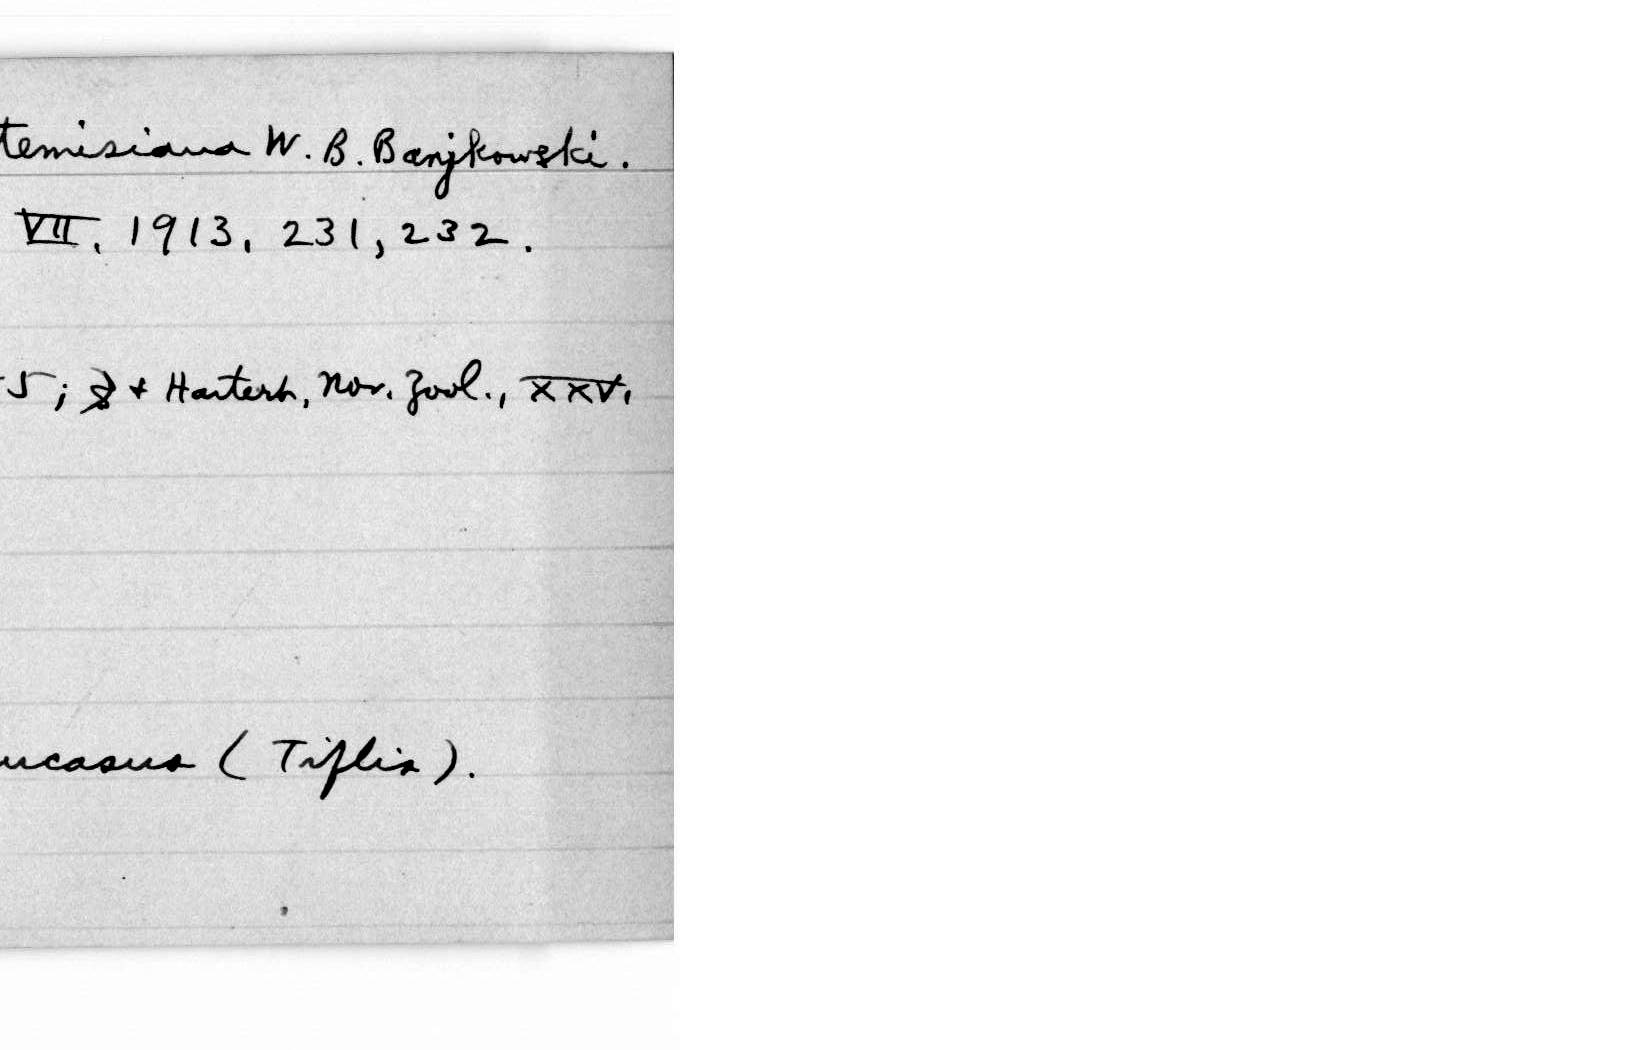 temisiana W. B. Banjkowski.
VII, 1913, 231, 232.
5; & + Hartert, Nov. Zool., XXV,
ucasus (Tiflis).